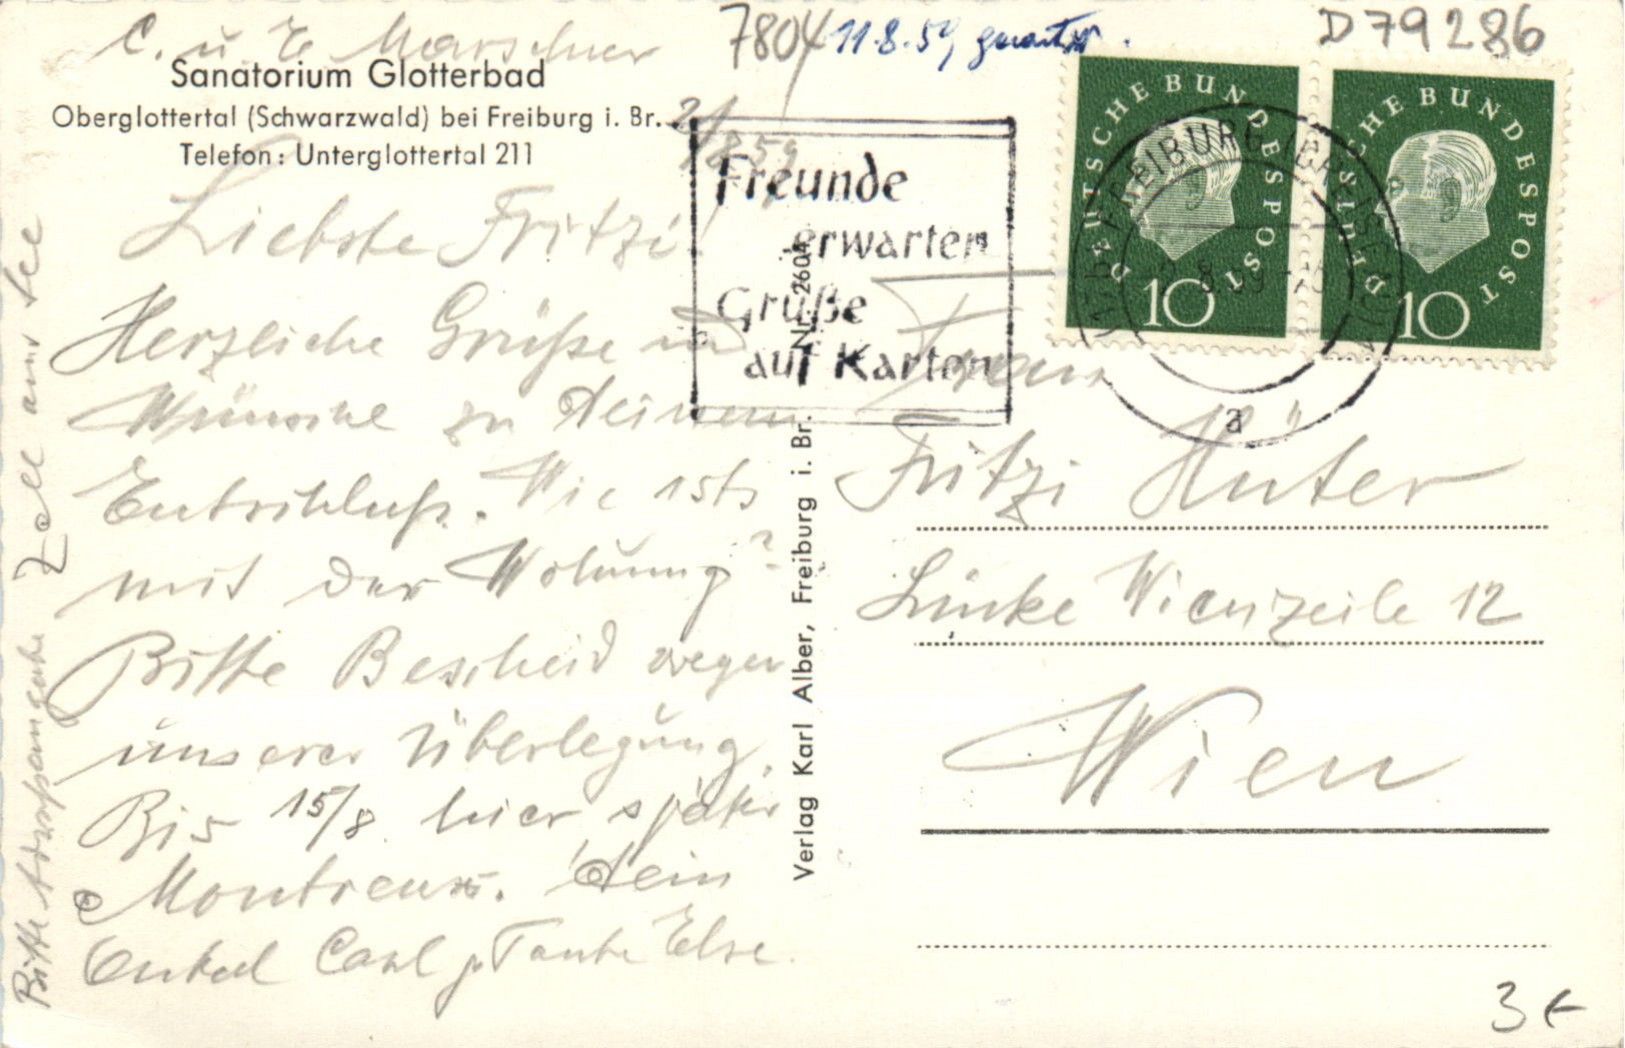 C. u. E. Marschner
7804
11.8.59
D79286
Sanatorium Glotterbad
Oberglottertal (Schwarzwald) bei Freiburg i. Br.
Telefon: Unterglottertal 211
2/8 59
Liebste Fritzi!
Herzliche Grüße und
Wünsche zu Deinem
Entschluß. Wie ists
mit der Wohnung?
Bitte Bescheid wegen
unserer Überlegung.
Bis 15/8 hier später
Montreux. Dein
Onkel Carl u. Tante Else.
Bitte
Zell am See
Freunde
erwarten
Grüße
auf Karten
DEUTSCHE BUNDESPOST
10
DEUTSCHE BUNDESPOST
10
FREIBURG (BREISGAU)
a
Verlag Karl Alber, Freiburg i. Br. Nr. 2604
Frau
Fritzi Hüter
Linke Wienzeile 12
Wien
3 €